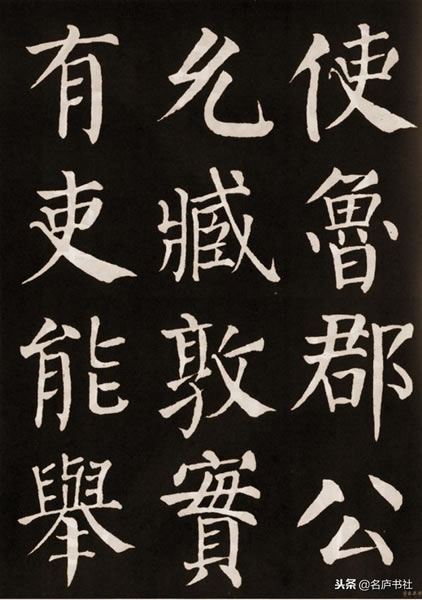 使魯郡公
允臧敦實
有吏能舉
头条 @名庐书社